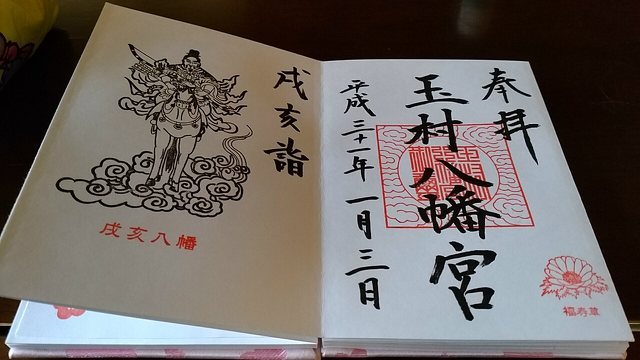 奉拝
玉村八幡宮
平成三十一年一月三日
福寿草
戌亥詣
戌亥八幡